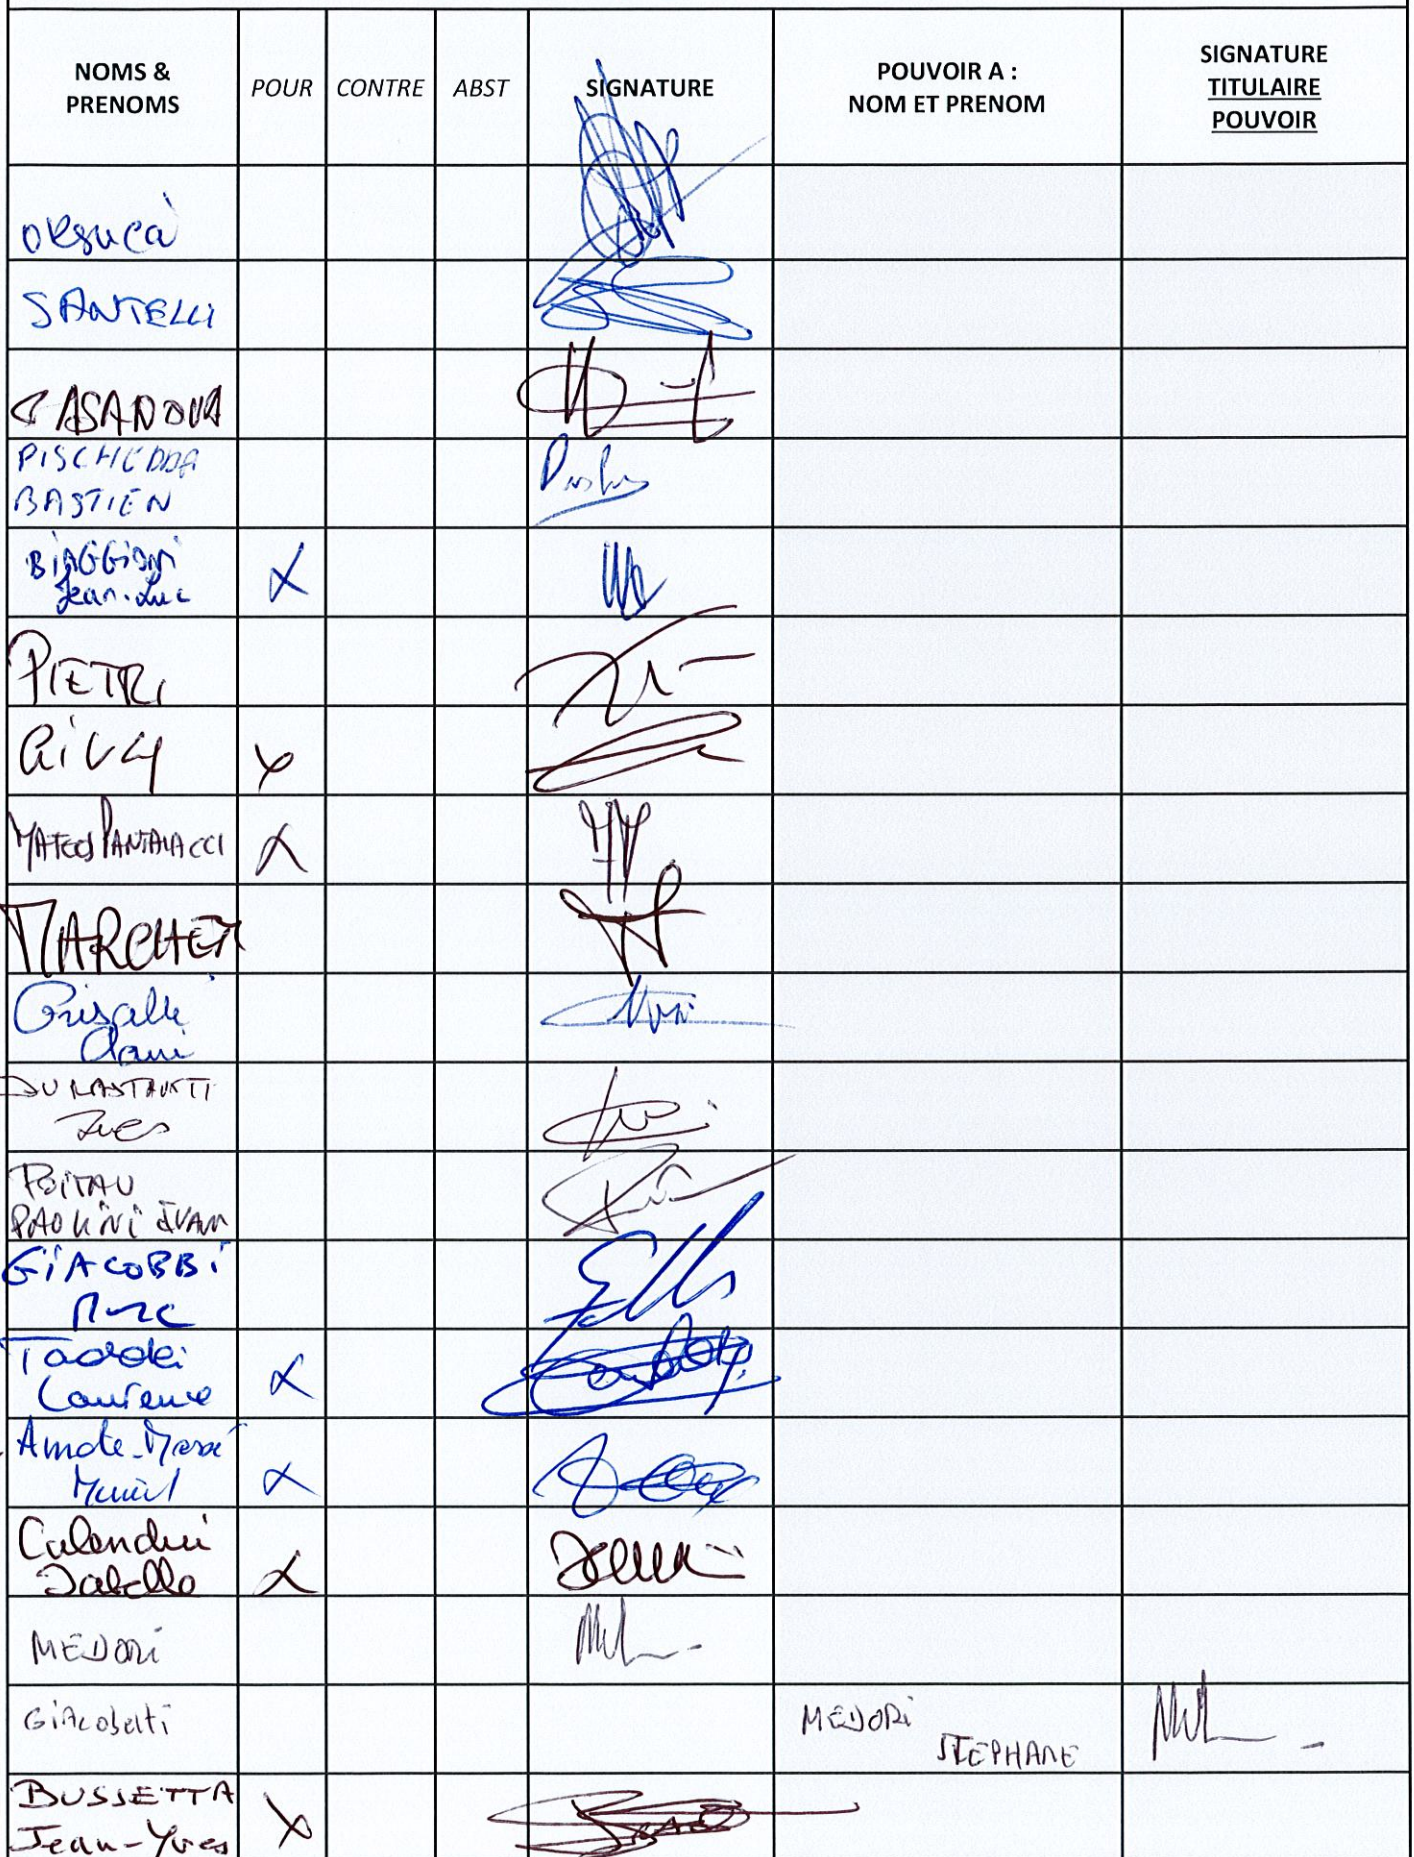 NOMS & PRENOMS POUR CONTRE ABST SIGNATURE POUVOIR A : NOM ET PRENOM SIGNATURE TITULAIRE POUVOIR
ORSUCCI
SANTELLI
CASANOVA
PISCHEDDA
BASTIEN
BIAGGIONI
Jean-Luc X
PIETRI
RIVA X
MATEOS PANTALACCI X
MARCHETTI
Grisalli
DURASTANTI
Yves
POITAU
PAOLINI IVAN
GIACOBBI
Marc
Taddei
Laurence X
Amate-
Muriel X
Calendini
Isabelle X
MEDORI
Giacobetti MEDORI
STEPHANE
BUSSETTA
Jean-Yves X